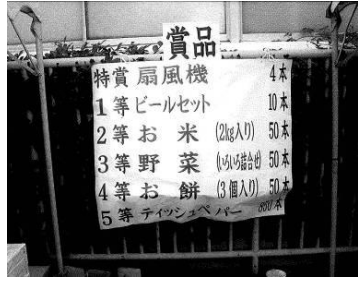 賞品
特賞 扇風機 4本
1等 ビールセット 10本
2等 お米 (2kg入り) 50本
3等 野菜 (いろいろ詰合せ) 50本
4等 お餅 (3個入り) 50本
5等 ティッシュペーパー 本